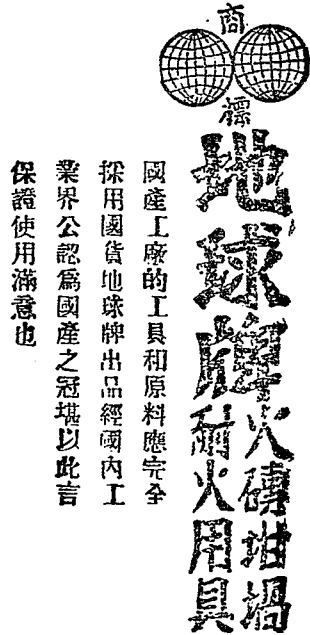 商標
地球牌
火磚坩堝
耐火用具
國產工廠的工具和原料應完全
採用國貨地球牌出品經國內工
業界公認爲國產之冠堪以此言
保證使用滿意也